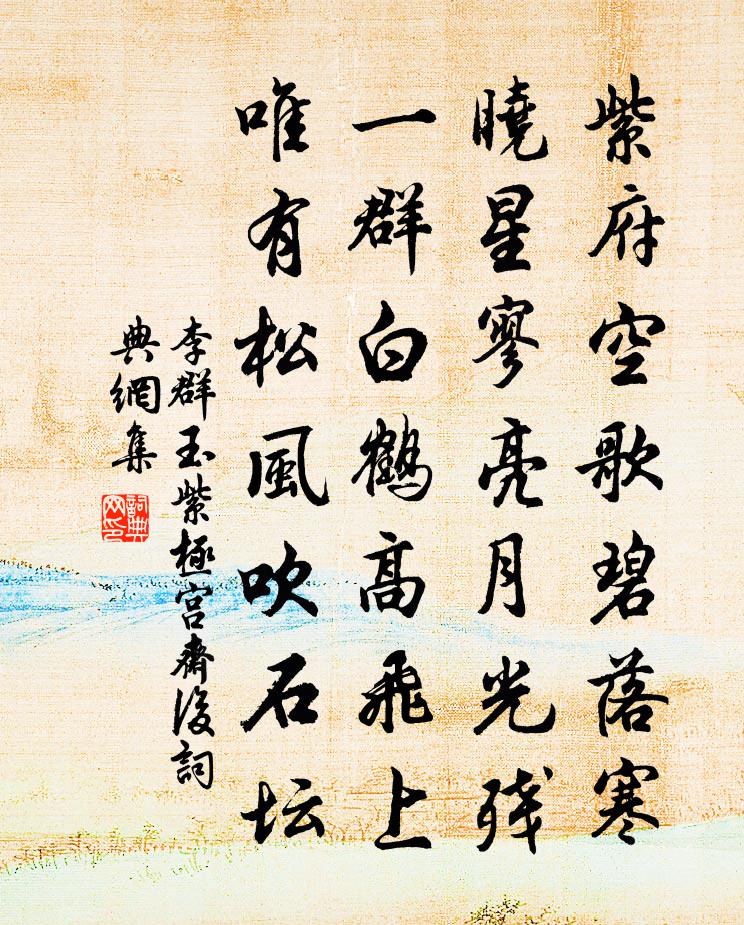 紫府空歌碧落寒
曉星寥亮月光残
一群白鶴高飛上
唯有松風吹石坛
李群玉紫極宫齋後詞
典網集
詞典
网印